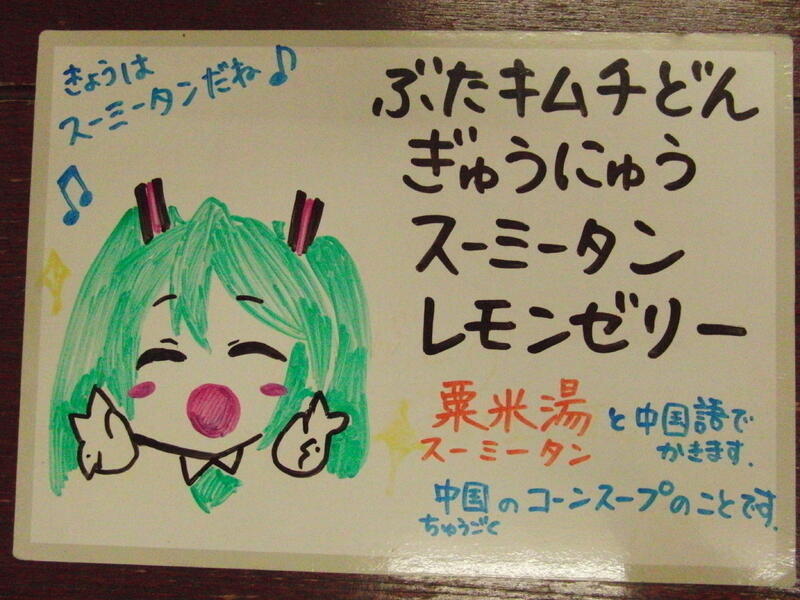 きょうは
スーミータンだね♪
ぶたキムチどん
ぎゅうにゅう
スーミータン
レモンゼリー
粟米湯と中国語で
スーミータン かきます.
中国のコーンスープのことです.
ちゅうごく